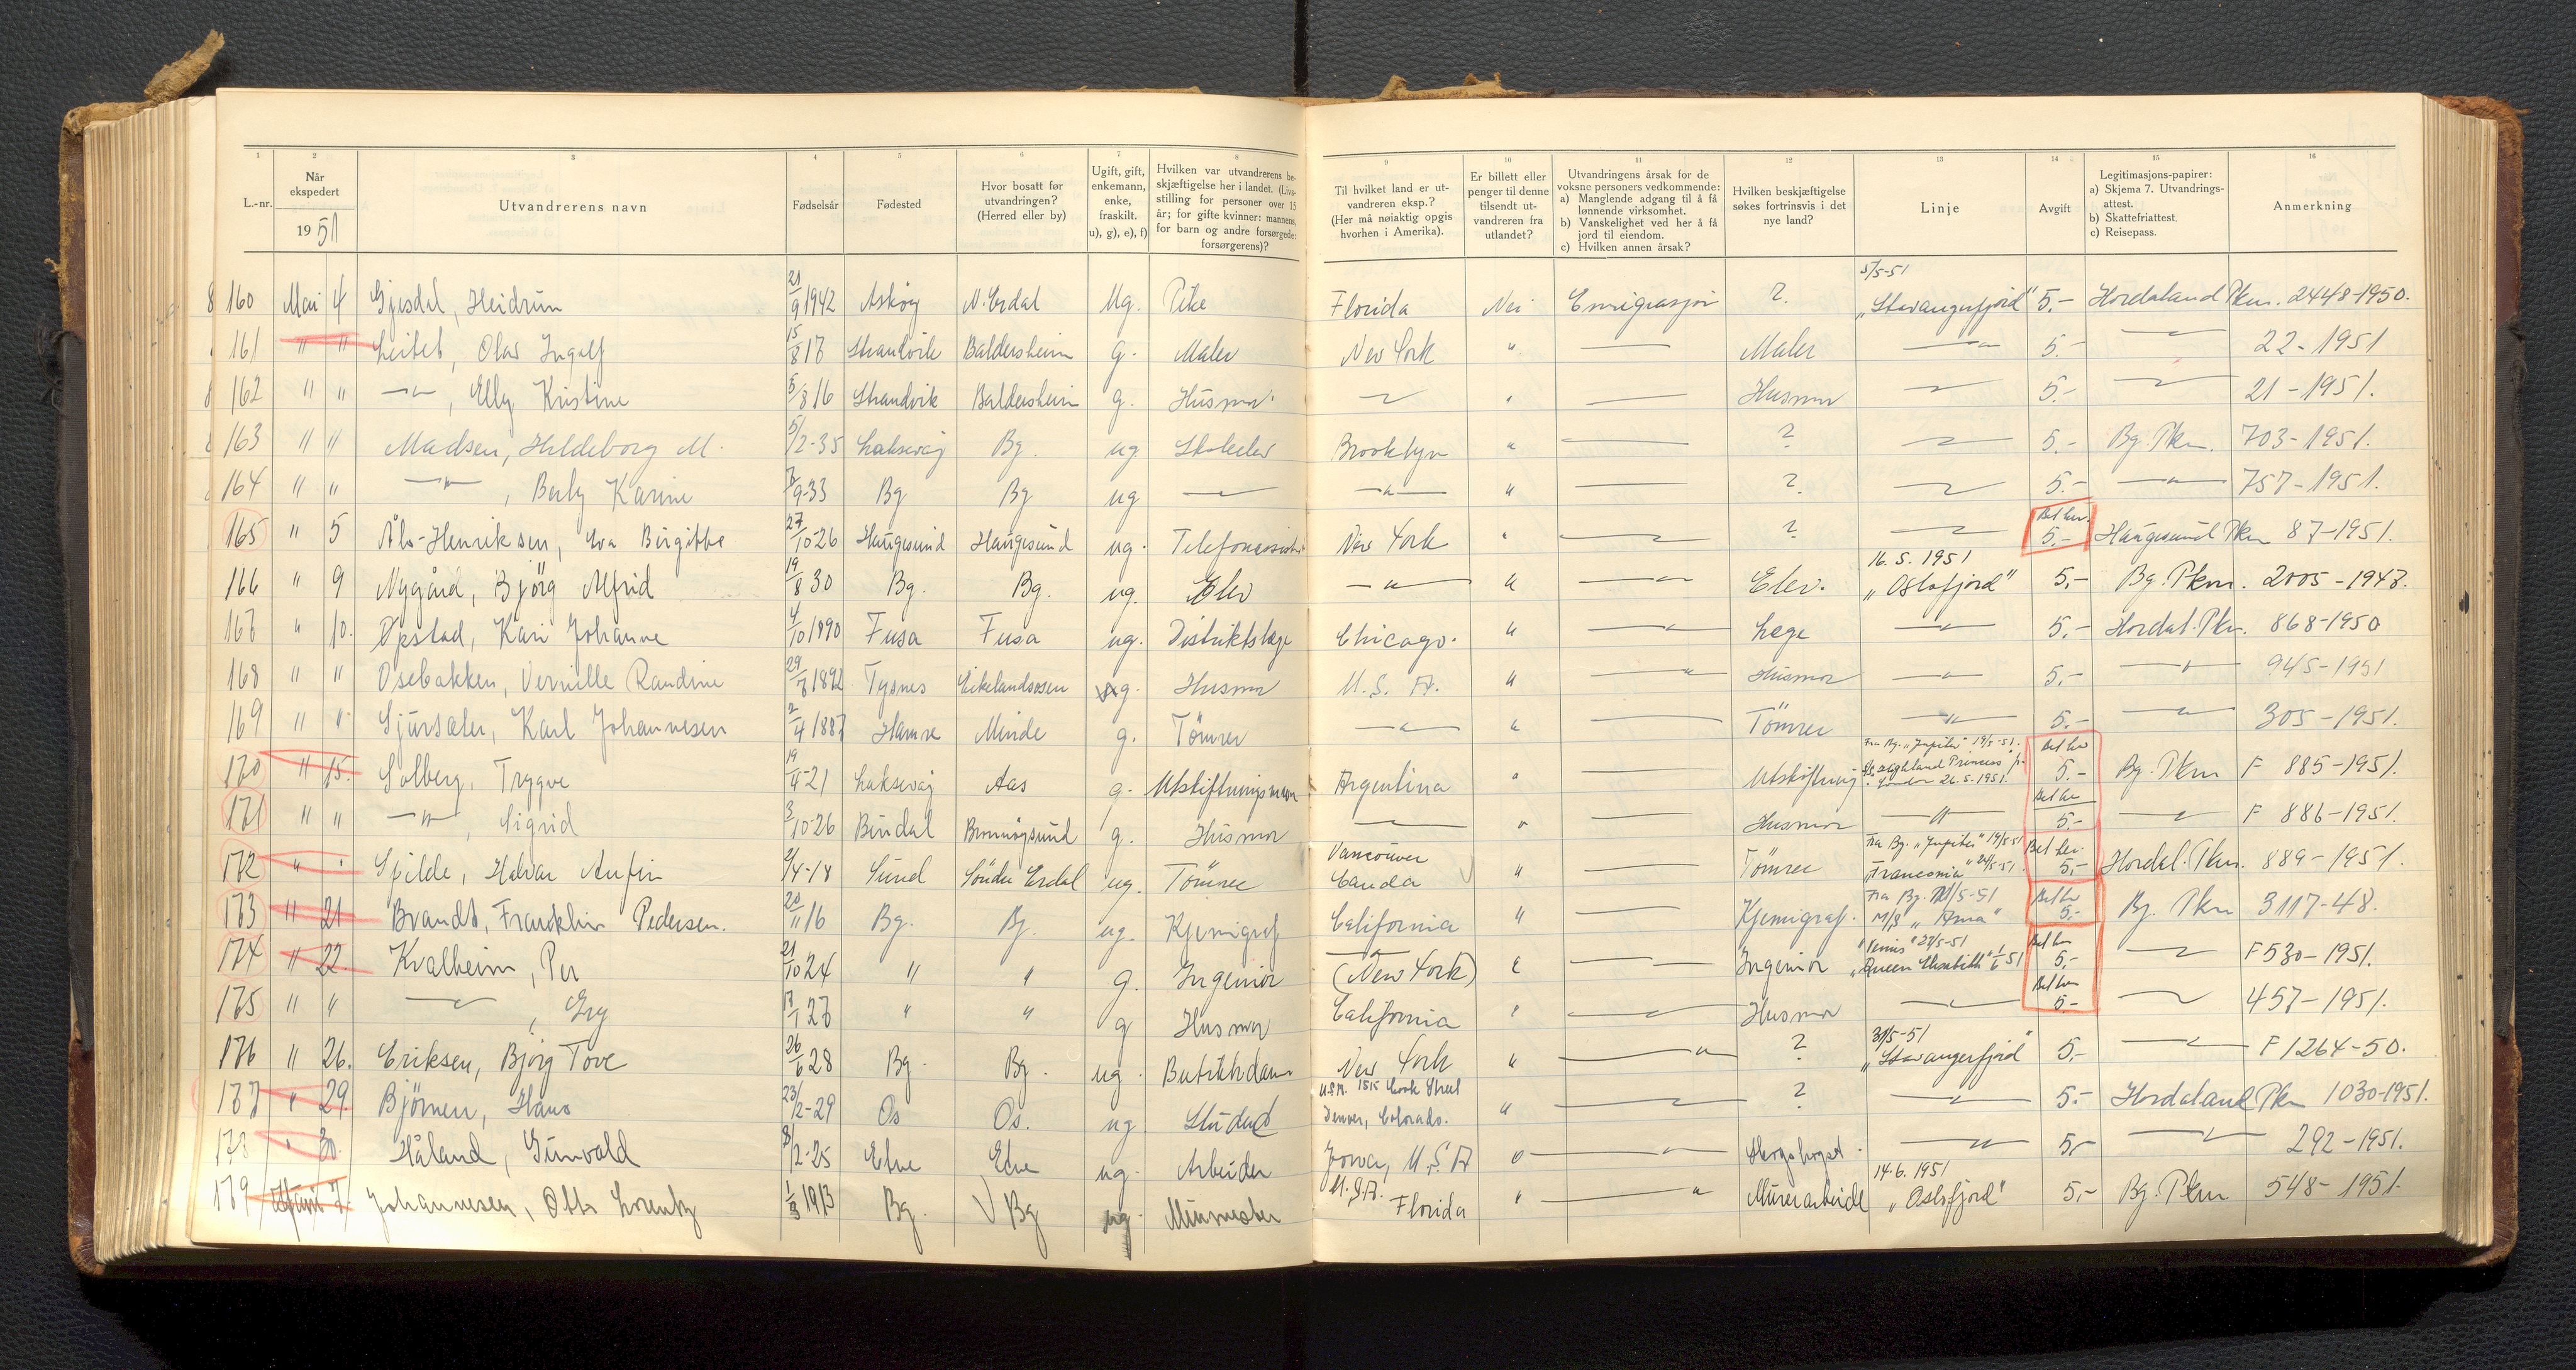 1 2 3 4 5 6 7 8 9 10 11 12 13 14 15 16
L.-nr. | Når ekspedert 1951 | Utvandrerens navn | Fødselsår | Fødested | Hvor bosatt før utvandringen? (Herred eller by) | Ugift, gift, enkemann, enke, fraskilt. u), g), e), f) | Hvilken var utvandrerens beskjæftigelse her i landet. (Livsstilling for personer over 15 år; for gifte kvinner: mannens, for barn og andre forsørgede: forsørgerens)? | Til hvilket land er utvandreren eksp.? (Her må nøiaktig opgis hvorhen i Amerika). | Er billett eller penger til denne tilsendt utvandreren fra utlandet? | Utvandringens årsak for de voksne personers vedkommende: a) Manglende adgang til å få lønnende virksomhet. b) Vanskelighet ved her å få jord til eiendom. c) Hvilken annen årsak? | Hvilken beskjæftigelse søkes fortrinsvis i det nye land? | Linje | Avgift | Legitimasjons-papirer: a) Skjema 7. Utvandrings-attest. b) Skattefriattest. c) Reisepass. | Anmerkning
160 Mai 4 Gjesdal, Heidrun 21/9 1942 Askøy N. Erdal Ug. Pike Florida Nei Emigrasjon ? 5/5-51 "Stavangerfjord" 5.- Hordaland Pkm. 2448-1950.
161 " " Leitet, Olav Ingolf 15/8 17 Strandvik Baldersheim g. Maler New York " — Maler —"— 5.- —"— 22-1951
162 " " —"—, Elly Kristine 5/8 16 Strandvik Baldersheim g. Husmor —"— " — Husmor —"— 5.- —"— 21-1951.
163 " " Madsen, Hildeborg M. 5/2-35 Laksevåg Bg. ug. Skoleelev Brooklyn " — ? —"— 5.- Bg. Pkm. 703-1951.
164 " " —"—, Berly Karine 9-33 Bg Bg ug — —"— " — ? —"— 5.- —"— 757-1951.
165 " 5 Åls-Henriksen, Eva Birgitte 27/10-26 Haugesund Haugesund ug. New York " —"— ? —"— Bet her. 5.- Haugesund Pkm 87-1951.
166 " 9 Nygård, Bjørg Alfrid 19/8 30 Bg. Bg. ug. Elev —"— " —"— Elev. 16.5.1951 "Oslofjord" 5.- Bg. Pkm. 2005-1948.
167 " 10. Opstad, Kari Johanne 4/10 1890 Fusa Fusa ug. Distriktslege Chicago. " —"— Lege —"— 5.- Hordal. Pkm. 868-1950
168 " " Osebakken, Vernille Randine 29/8 1892 Tysnes Eikelandsosen g. Husmor U.S.A. " —"— Husmor —"— 5.- —"— 945-1951
169 " " Sjursæter, Karl Johannesen 2/4 1887 Hamre Minde g. Tömrer —"— " — Tömrer —"— 5.- —"— 305-1951.
170 " 15. Solberg, Trygve 19/4-21 Laksevåg Aas g. Utskiftningsmann Argentina " — Utskiftning Fra Bg. "Jupiter" 19/5-51. S/s Highland Princess fr. London 26.5.1951. Bet her 5.- Bg. Pkm F 885-1951.
171 " " —"—, Sigrid 3/10-26 Bindal Brønnøysund g. Husmor —"— " — Husmor —"— Bet her 5.- —"— F 886-1951.
172 " " Spilde, Halvar Anfin 2/4-18 Sund Söndre Erdal ug. Tömrer Vancouver Canda " — Tömrer Fra Bg. "Jupiter" 19/5-51 "Franconia" 24/5-51. Bet her. 5.- Hordal. Pkm. 889-1951.
173 " 21 Brandt, Francklin Pedersen. 20/11 16 Bg. Bg. ug. Kjemigraf California " — Kjemigraf. Fra Bg. 21/5-51 M/S "Anna" Bet her 5.- Bg. Pkm 3117-48.
174 " 22. Kvalheim, Per 21/10 24 " " g. Ingeniör (New York) " — Ingeniör "Venus" 27/5-51 "Queen Elisabeth" 1/6 51 Bet her 5.- —"— F 530-1951.
175 " " —"—, Gry 1 27 " " g Husmor California " —"— Husmor —"— Bet her 5.- —"— 457-1951.
176 " 26. Eriksen, Bjørg Tove 26/6 28 Bg. Bg. ug. Butikkdame New York " —"— ? 31/5-51 "Stavangerfjord" 5.- —"— F 1264-50.
177 " 29. Björnen, Hans 23/2-29 Os Os. ug Student U.S.A. 1515 Cook Street Denver, Colorado. " —"— ? —"— 5.- Hordaland Pkm 1030-1951.
178 " 30. Håland, Gunvald 8/2-25 Etne Etne ug. Arbeider Jowa, U.S.A " —"— Skogshogst. —"— 5.- —"— 292-1951.
179 Johannesen, Otto Lorentz 1/3 1913 Bg. Bg ug. Murmester U.S.A. Florida " —"— Murerarbeide 14.6.1951 "Oslofjord" 5.- Bg. Pkm 548-1951.